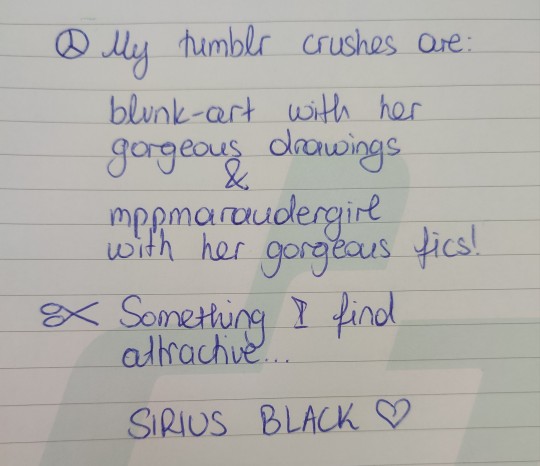 ☮ My tumblr crushes are:
blvnk-art with her
gorgeous drawings
&
mppmaraudergirl
with her gorgeous fics!
✂ Something I find
attractive...
SIRIUS BLACK ♡